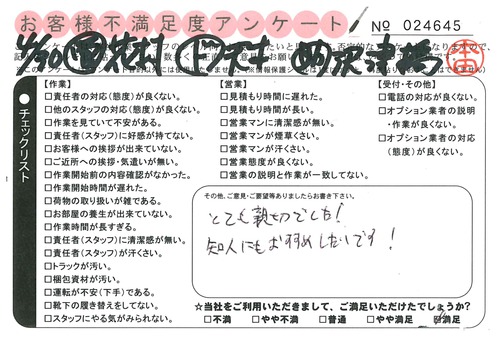 お客様不満足度アンケート
№ 024645
チェックリスト
【作業】
□責任者の対応(態度)が良くない。
□他のスタッフの対応(態度)が良くない。
□作業を見ていて不安がある。
□責任者(スタッフ)に好感が持てない。
□お客様への挨拶が出来ていない。
□ご近所への挨拶・気遣いが無い。
□作業開始前の内容確認がなかった。
□作業開始時間が遅れた。
□荷物の取り扱いが雑である。
□お部屋の養生が出来ていない。
□作業時間が長すぎる。
□責任者(スタッフ)に清潔感が無い。
□責任者(スタッフ)が汗くさい。
□トラックが汚い。
□梱包資材が汚い。
□運転が不安(下手)である。
□靴下の履き替えをしてない。
□スタッフにやる気がみられない。
【営業】
□見積もり時間に遅れた。
□見積もり時間が長い。
□営業マンに清潔感が無い。
□営業マンが煙草くさい。
□営業マンが汗くさい。
□営業態度が良くない。
□営業の説明と作業が一致してない。
【受付・その他】
□電話の対応が良くない。
□オプション業者の説明
・作業が良くない。
□オプション業者の対応
(態度)が良くない。
その他、ご意見・ご要望等ありましたらお書き下さい。
とても親切でした!
知人にもおすすめしたいです!
☆当社をご利用いただきまして、ご満足いただけたでしょうか?
□不満 □やや不満 □普通 □やや満足 □満足